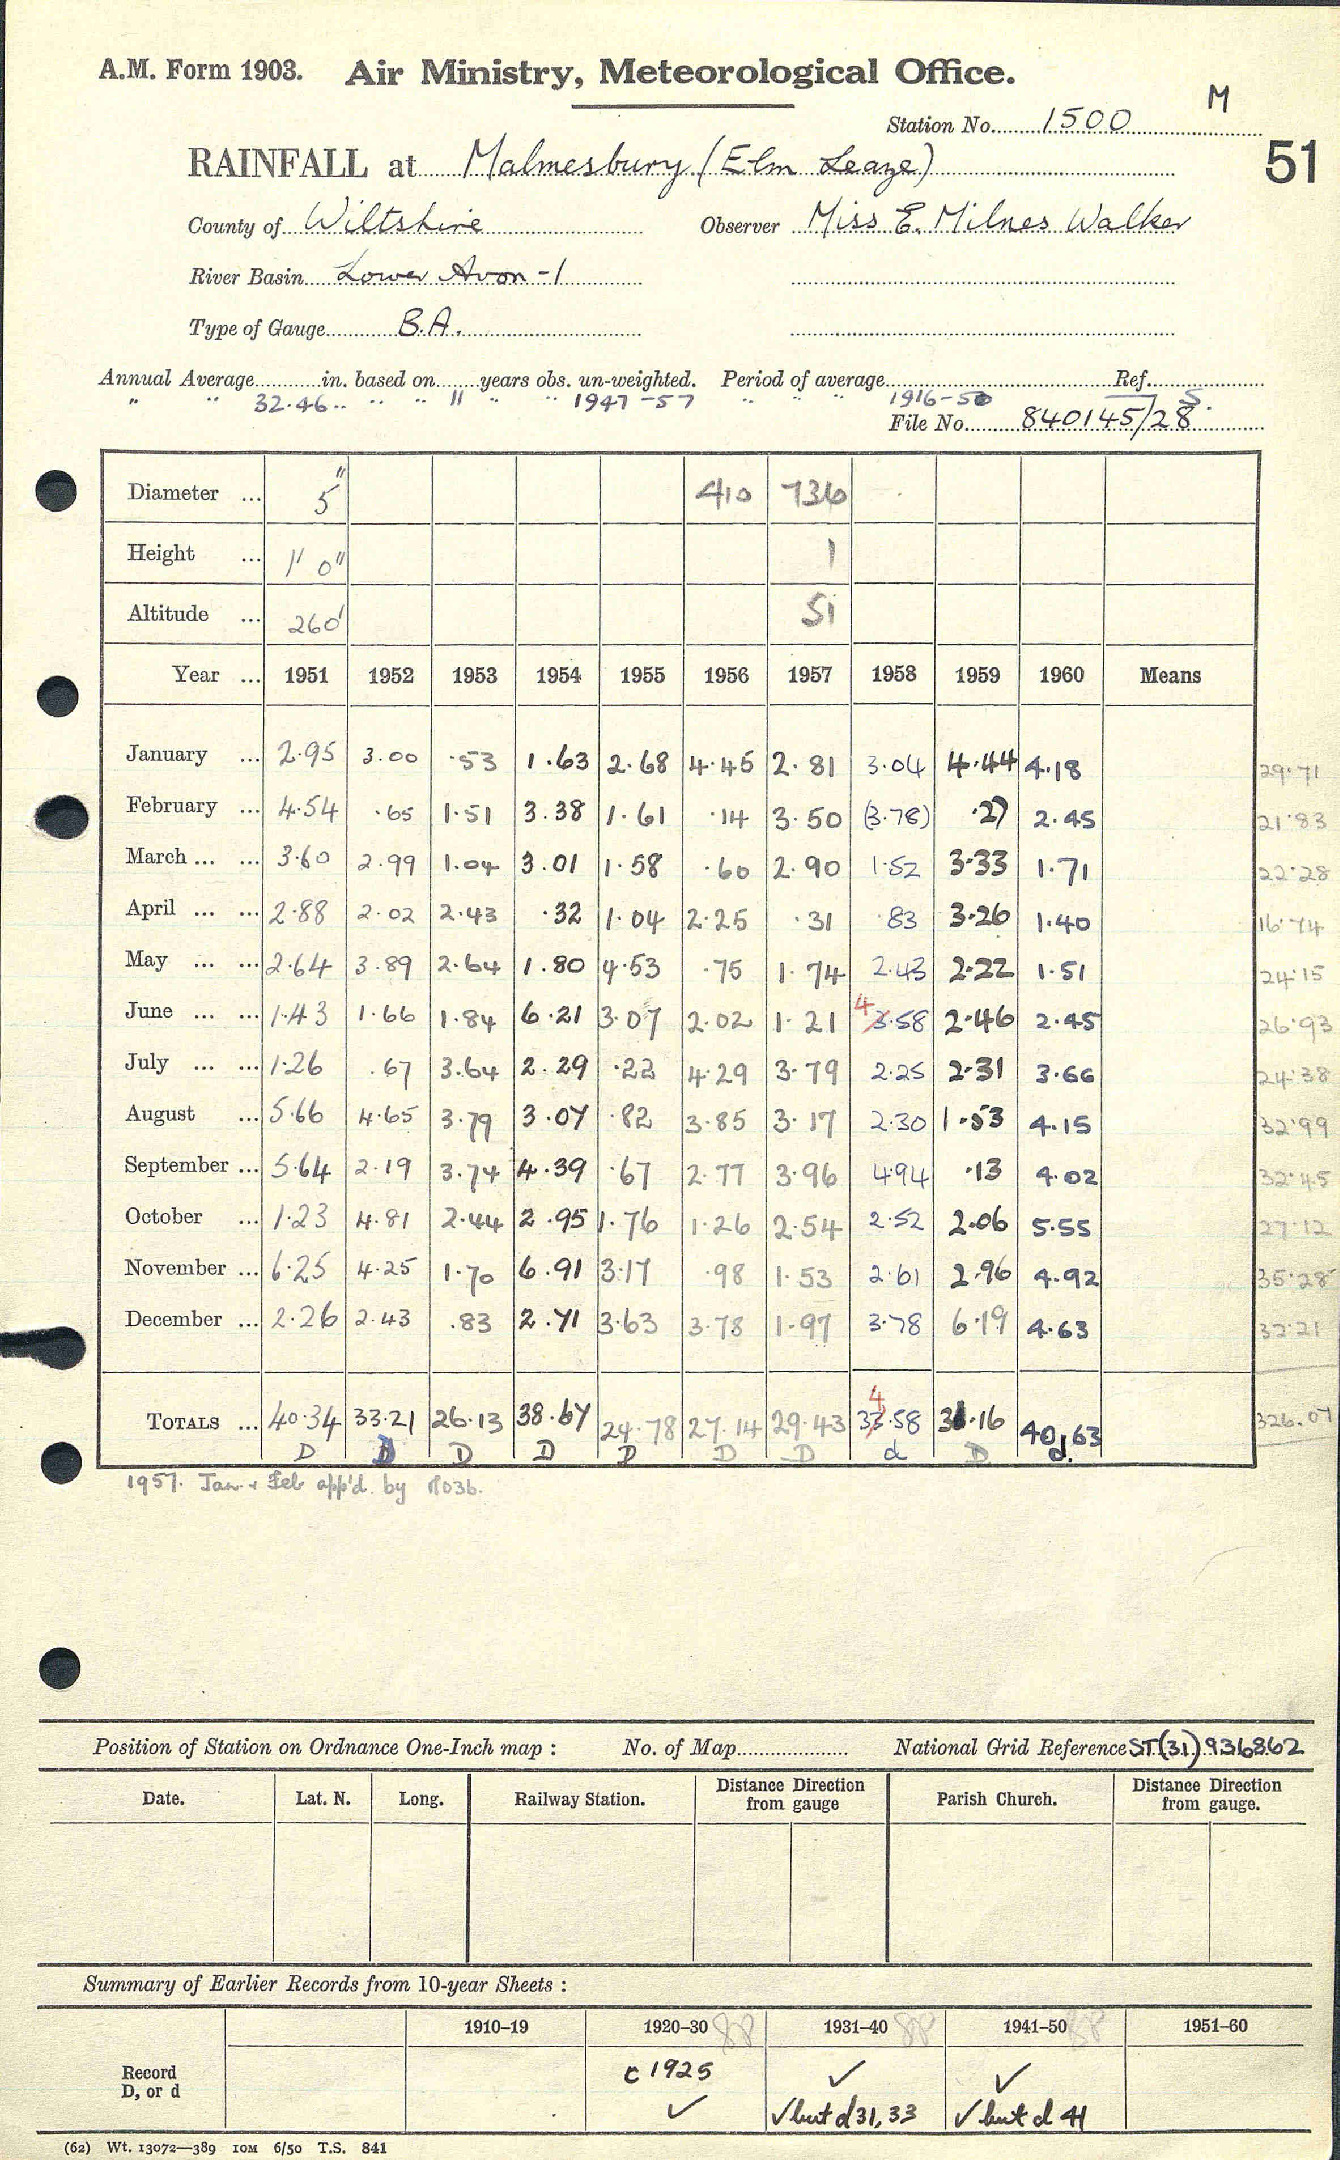 A.M. Form 1903. Air Ministry, Meteorological Office.
M
Station No. 1500
51
RAINFALL at Malmesbury (Elm Leaze)
County of Wiltshire Observer Miss E. Milnes Walker
River Basin Lower Avon - 1
Type of Gauge B.A.
Annual Average in. based on years obs. un-weighted. Period of average Ref.
" " 32.46 " " 11 " " 1947-57 " " " 1916-50 S.
File No. 840145/28
Diameter ... 5" 410 736
Height ... 1' 0" 1
Altitude ... 260' 51
Year ... 1951 1952 1953 1954 1955 1956 1957 1958 1959 1960 Means
January ... 2.95 3.00 .53 1.63 2.68 4.45 2.81 3.04 4.44 4.18 29.71
February ... 4.54 .65 1.51 3.38 1.61 .14 3.50 (3.78) .27 2.45 21.83
March ... ... 3.60 2.99 1.04 3.01 1.58 .60 2.90 1.52 3.33 1.71 22.28
April ... ... 2.88 2.02 2.43 .32 1.04 2.25 .31 .83 3.26 1.40 16.74
May ... ... 2.64 3.89 2.64 1.80 4.53 .75 1.74 2.43 2.22 1.51 24.15
June ... ... 1.43 1.66 1.84 6.21 3.07 2.02 1.21 4 3.58 2.46 2.45 26.93
July ... ... 1.26 .67 3.64 2.29 .22 4.29 3.79 2.25 2.31 3.66 24.38
August ... 5.66 4.65 3.79 3.07 .82 3.85 3.17 2.30 1.53 4.15 32.99
September ... 5.64 2.19 3.74 4.39 .67 2.77 3.96 4.94 .13 4.02 32.45
October ... 1.23 4.81 2.44 2.95 1.76 1.26 2.54 2.52 2.06 5.55 27.12
November ... 6.25 4.25 1.70 6.91 3.17 .98 1.53 2.61 2.96 4.92 35.28
December ... 2.26 2.43 .83 2.71 3.63 3.78 1.97 3.78 6.19 4.63 32.21
4
TOTALS ... 40.34 33.21 26.13 38.67 24.78 27.14 29.43 33.58 31.16 40.63 326.07
D D D D D D D d D d.
1957. Jan + Feb app'd. by
Position of Station on Ordnance One-Inch map : No. of Map National Grid Reference ST(31) 936862
Date. Lat. N. Long. Railway Station. Distance Direction from gauge Parish Church. Distance Direction from gauge.
Summary of Earlier Records from 10-year Sheets :
1910–19 1920–30 88 1931–40 88 1941–50 88 1951–60
Record
D, or d
c 1925 ✓ ✓
✓ ✓ but d 31, 33 ✓ but d 41
(62) Wt. 13072—389 10M 6/50 T.S. 841